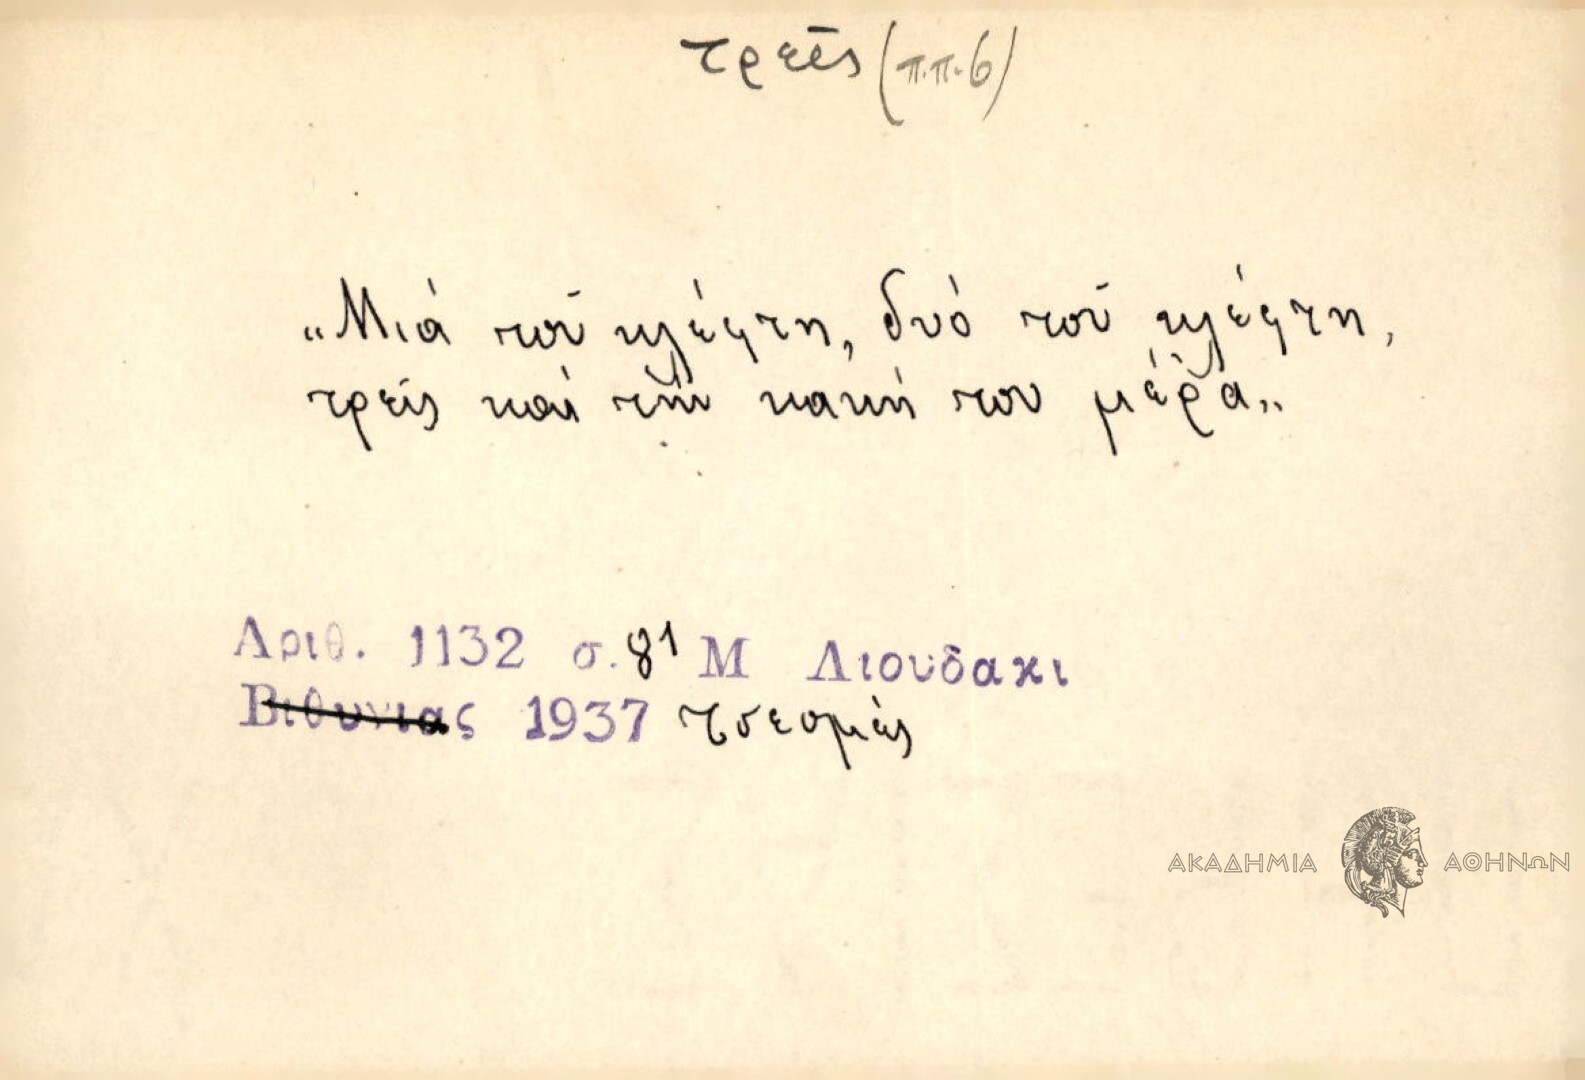 τρεῖς (π.π. 6)
„Μιά τοῦ κλέφτη, δυό τοῦ κλέφτη,
τρεῖς καί τήν κακή του μέρα„
Αριθ. 1132 σ. 81 Μ Λιουδακι
Βιθυνιας 1937 Τσεσμές
ΑΚΑΔΗΜΙΑ ΑΘΗΝΩΝ